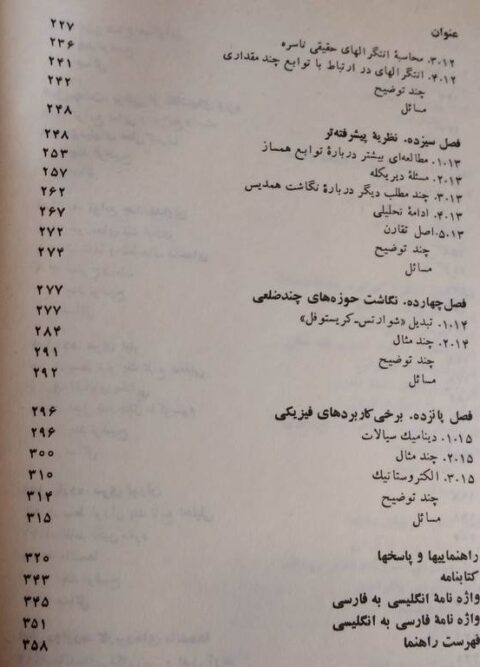 عنوان
۳.۱۲. محاسبهٔ انتگرالهای حقیقی ناسره ۲۲۷
۴.۱۲. انتگرالهای در ارتباط با توابع چند مقداری ۲۳۶
چند توضیح ۲۴۱
مسائل ۲۴۲
فصل سیزده. نظریهٔ پیشرفته‌تر ۲۴۸
۱.۱۳. مطالعه‌ای بیشتر دربارهٔ توابع همساز ۲۴۸
۲.۱۳. مسئلهٔ دیریکله ۲۵۳
۳.۱۳. چند مطلب دیگر دربارهٔ نگاشت همدیس ۲۵۷
۴.۱۳. ادامهٔ تحلیلی ۲۶۲
۵.۱۳. اصل تقارن ۲۶۷
چند توضیح ۲۷۲
مسائل ۲۷۴
فصل چهارده. نگاشت حوزه‌های چندضلعی ۲۷۷
۱.۱۴. تبدیل «شوارتس-کریستوفل» ۲۷۷
۲.۱۴. چند مثال ۲۸۴
چند توضیح ۲۹۱
مسائل ۲۹۲
فصل پانزده. برخی کاربردهای فیزیکی ۲۹۶
۱.۱۵. دینامیك سیالات ۲۹۶
۲.۱۵. چند مثال ۳۰۰
۳.۱۵. الکتروستاتیك ۳۱۰
چند توضیح ۳۱۴
مسائل ۳۱۵
راهنماییها و پاسخها ۳۲۰
کتابنامه ۳۴۳
واژه نامهٔ انگلیسی به فارسی ۳۴۵
واژه نامهٔ فارسی به انگلیسی ۳۵۱
فهرست راهنما ۳۵۸